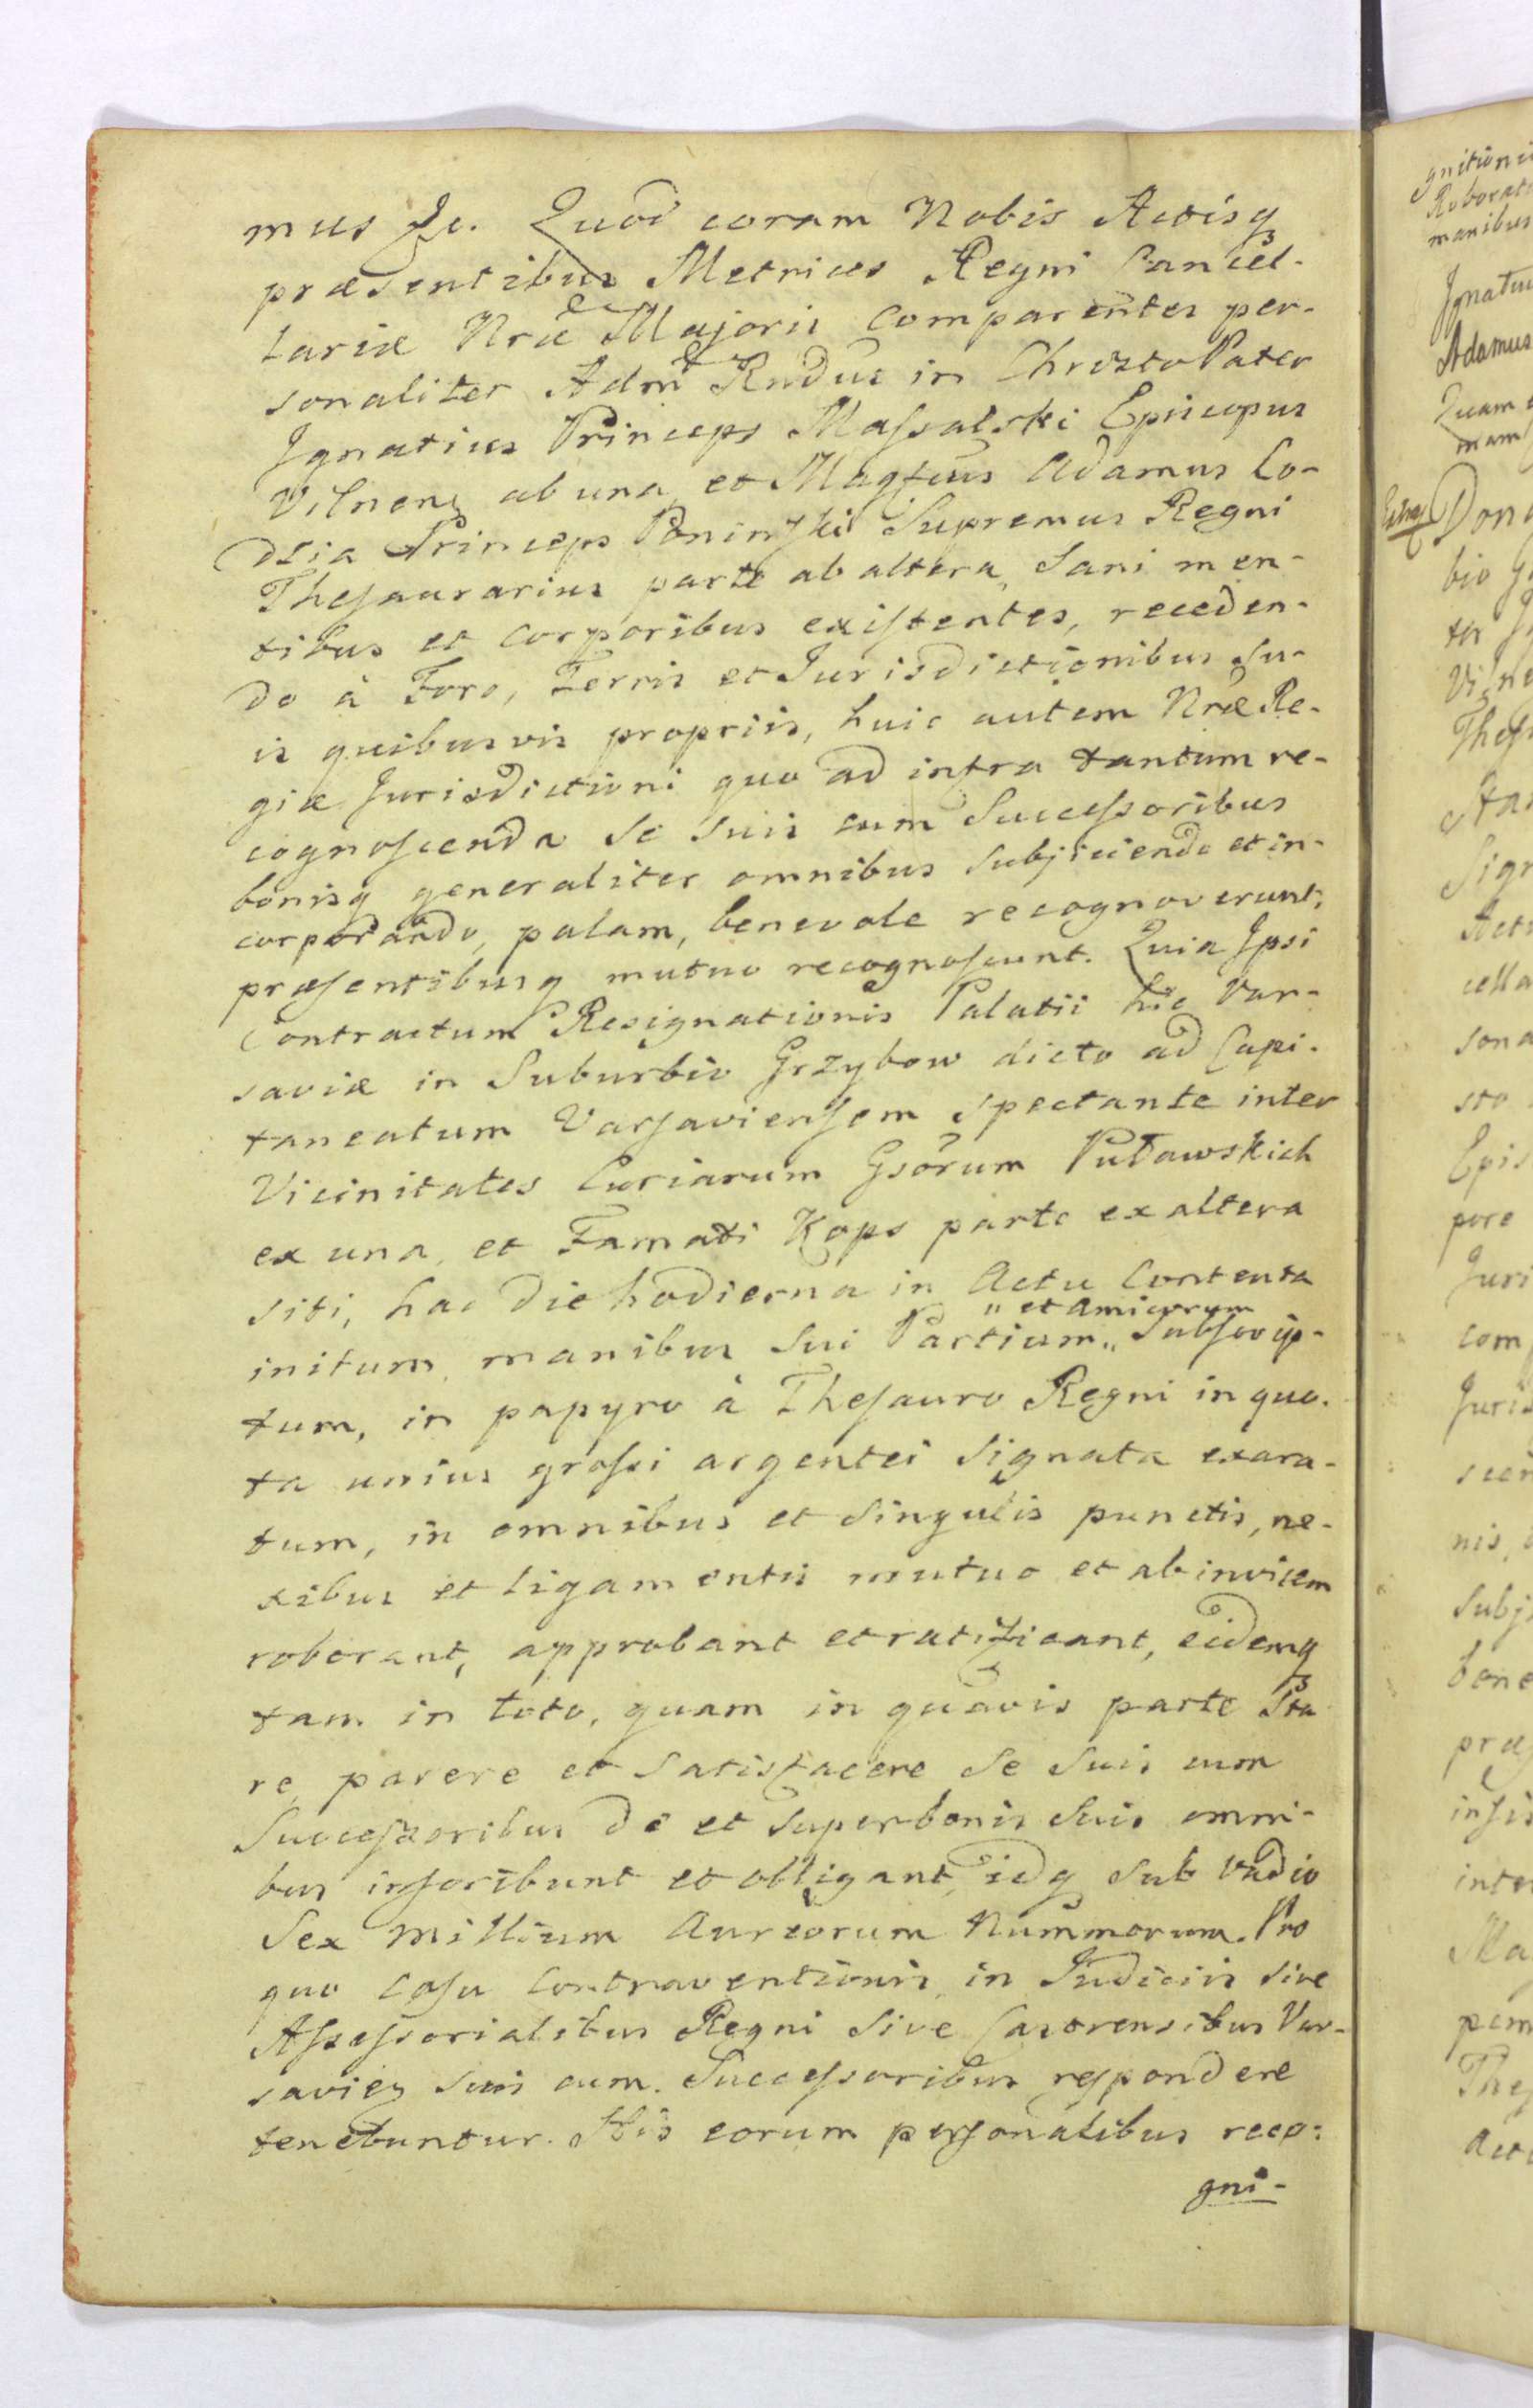 mus &c. Quod coram Nobis Actisq
præsentibus Metrices Regni Cancel-
lariæ Nræ Majoris Comparentes per-
sonaliter Adm Rndus in Christo Pater
Ignatius Princeps Massalski Episcopus
Vilnens ab una, et Magfcus Adamus Lo-
dzia Princeps Poninski Supremus Regni
Thesaurarius parte ab altera, Sani men-
tibus et corporibus existentes, receden-
do à Foro, Terris et Jurisdictionibus Su-
is quibusvis propriis, huic autem Nræ Re-
giæ Jurisdictioni quo ad infra tantum re-
cognoscenda Se Suis cum Successoribus
bonisq generaliter omnibus Subjiciendo et in-
corporando, palam, benevole recognoverunt,
præsentibusq mutuo recognoscunt. Quia Ipsi
Contractum Resignationis Palatii hic Var-
saviæ in Suburbio Grzybow dicto ad Capi-
taneatum Varsaviensem Spectante inter
Vicinitates Curiarum Gsorum Puławskich
ex una, et Famati Kops parte ex altera
siti, hac die hodierna in Actu Contenta
initum, manibus Sui Partium „ et amicorum „ Subscrip-
tum, in papyro à Thesauro Regni in quo-
ta unius grossi argentei Signata exara-
tum, in omnibus et Singulis punctis, ne-
xibus et ligamentis mutuo et ab invicem
roborant, approbant et ratificant, eidemq
tam in toto, quam in quavis parte Sta
re, parere et Satisfacere Se Suis cum
Successoribus de et Super bonis Suis omni-
bus inscribunt et obligant, idq Sub Vadio
Sex Millium Aureorum Nummorum. Pro
quo casu contraventionis, in Judiciis Sive
Assessorialibus Regni Sive Castrensibus Var-
savien Suis cum Successoribus respondere
tenebuntur. His eorum personalibus reco-
gni-
gnitionis
Roborat
manibus
Ignatius
Adamus
Quam
mam